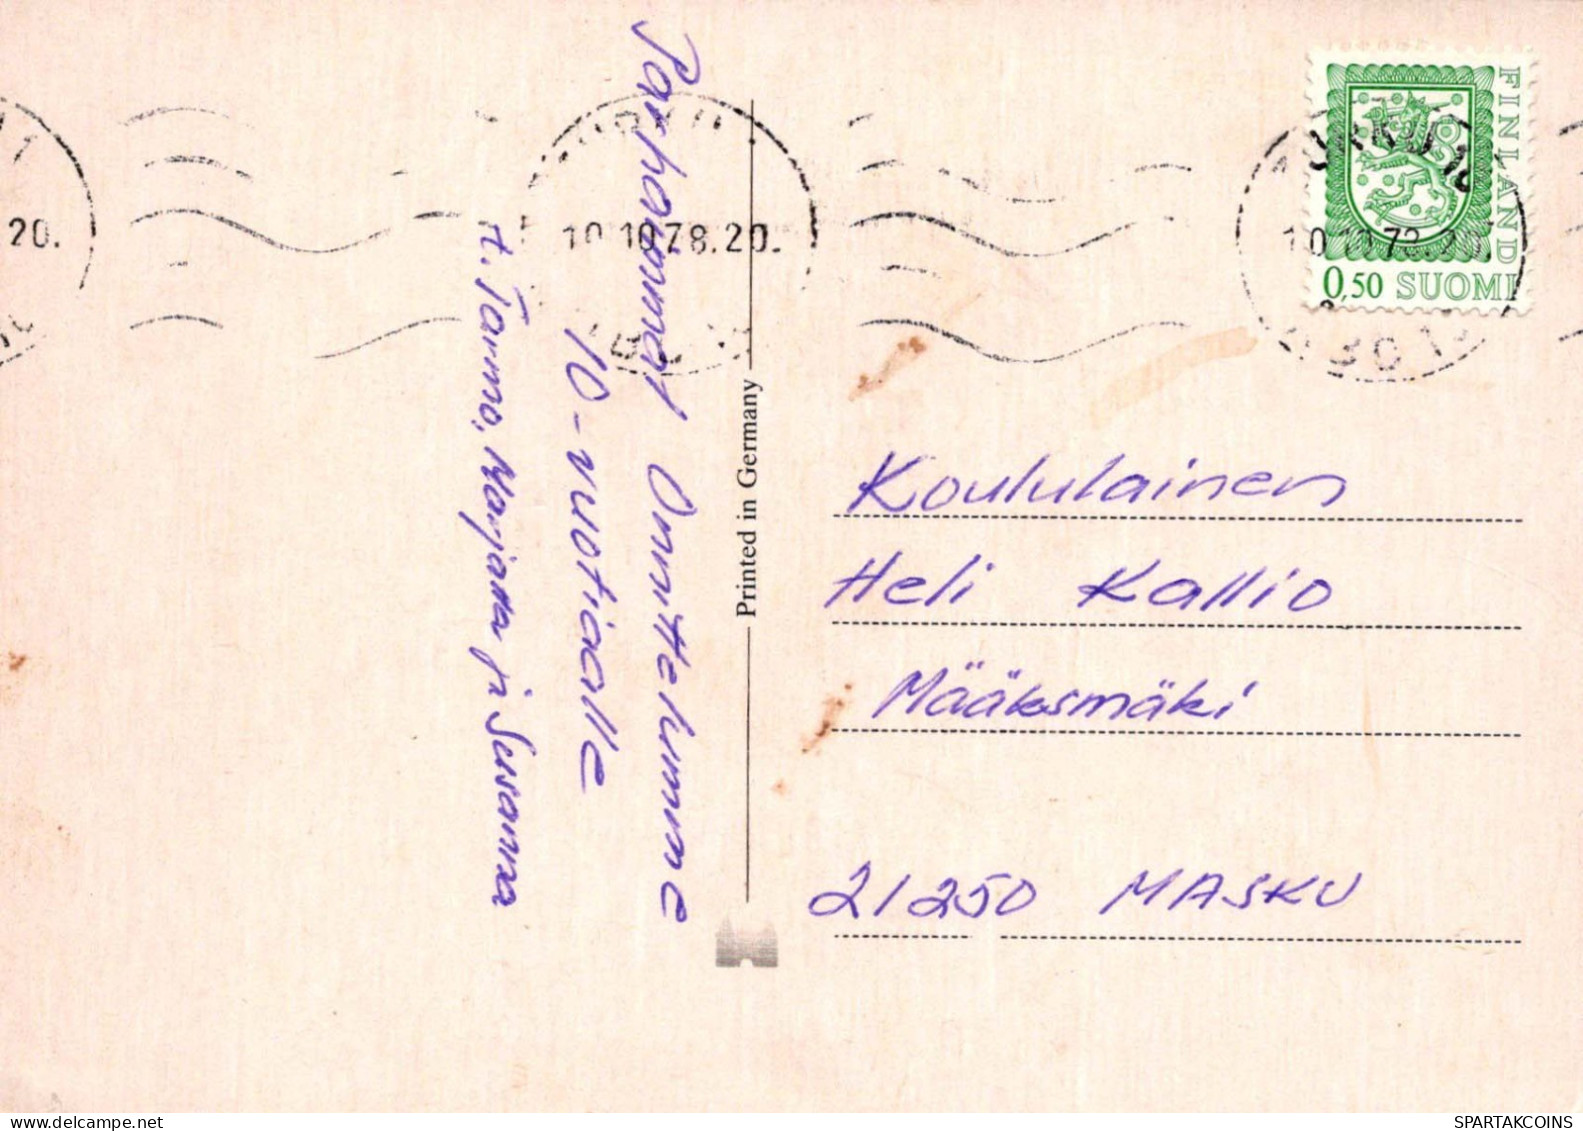 Parhaimmat Onnittelumme
10-vuotiaalle
t. Tarmo, Marjatta ja Susanna
Printed in Germany
FINLAND
0,50 SUOMI
TURKU 10
10.10.78.20.
ÅBO 10
TURKU
10.10.78.20.
ÅBO
20.
Koululainen
Heli Kallio
Määksmäki
21250 MASKU
SPARTAKCOINS